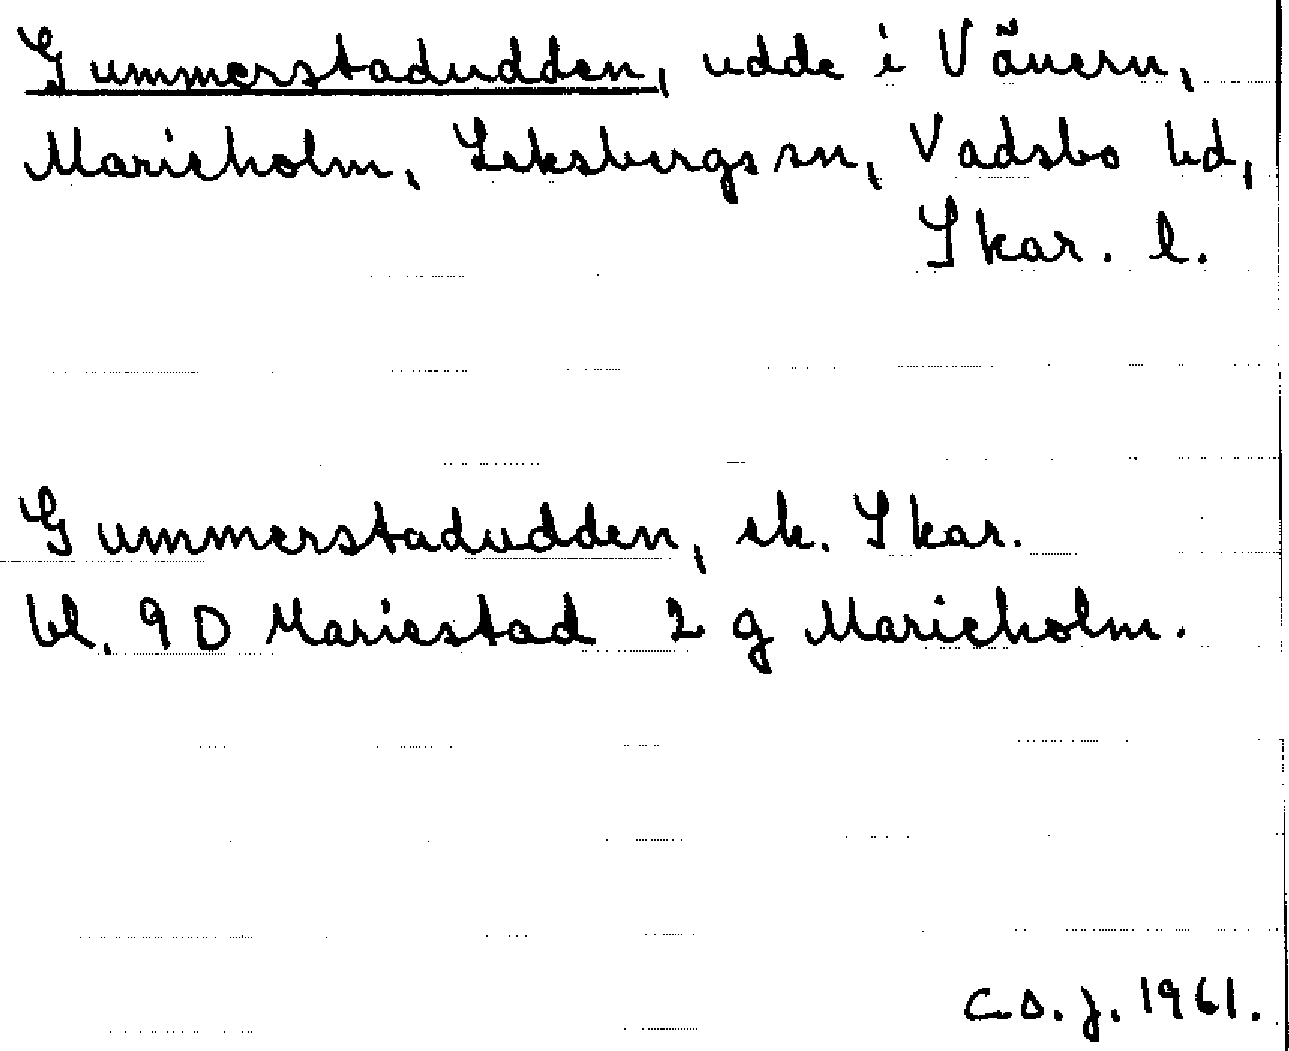 Gummerstadudden, udde i Vänern,
Marieholm, Leksbergs sn, Vadsbo hd,
Skar. l.
Gummerstadudden, ek. Skar.
bl. 9 D Mariestad 2 g Marieholm.
C.S.J. 1961.